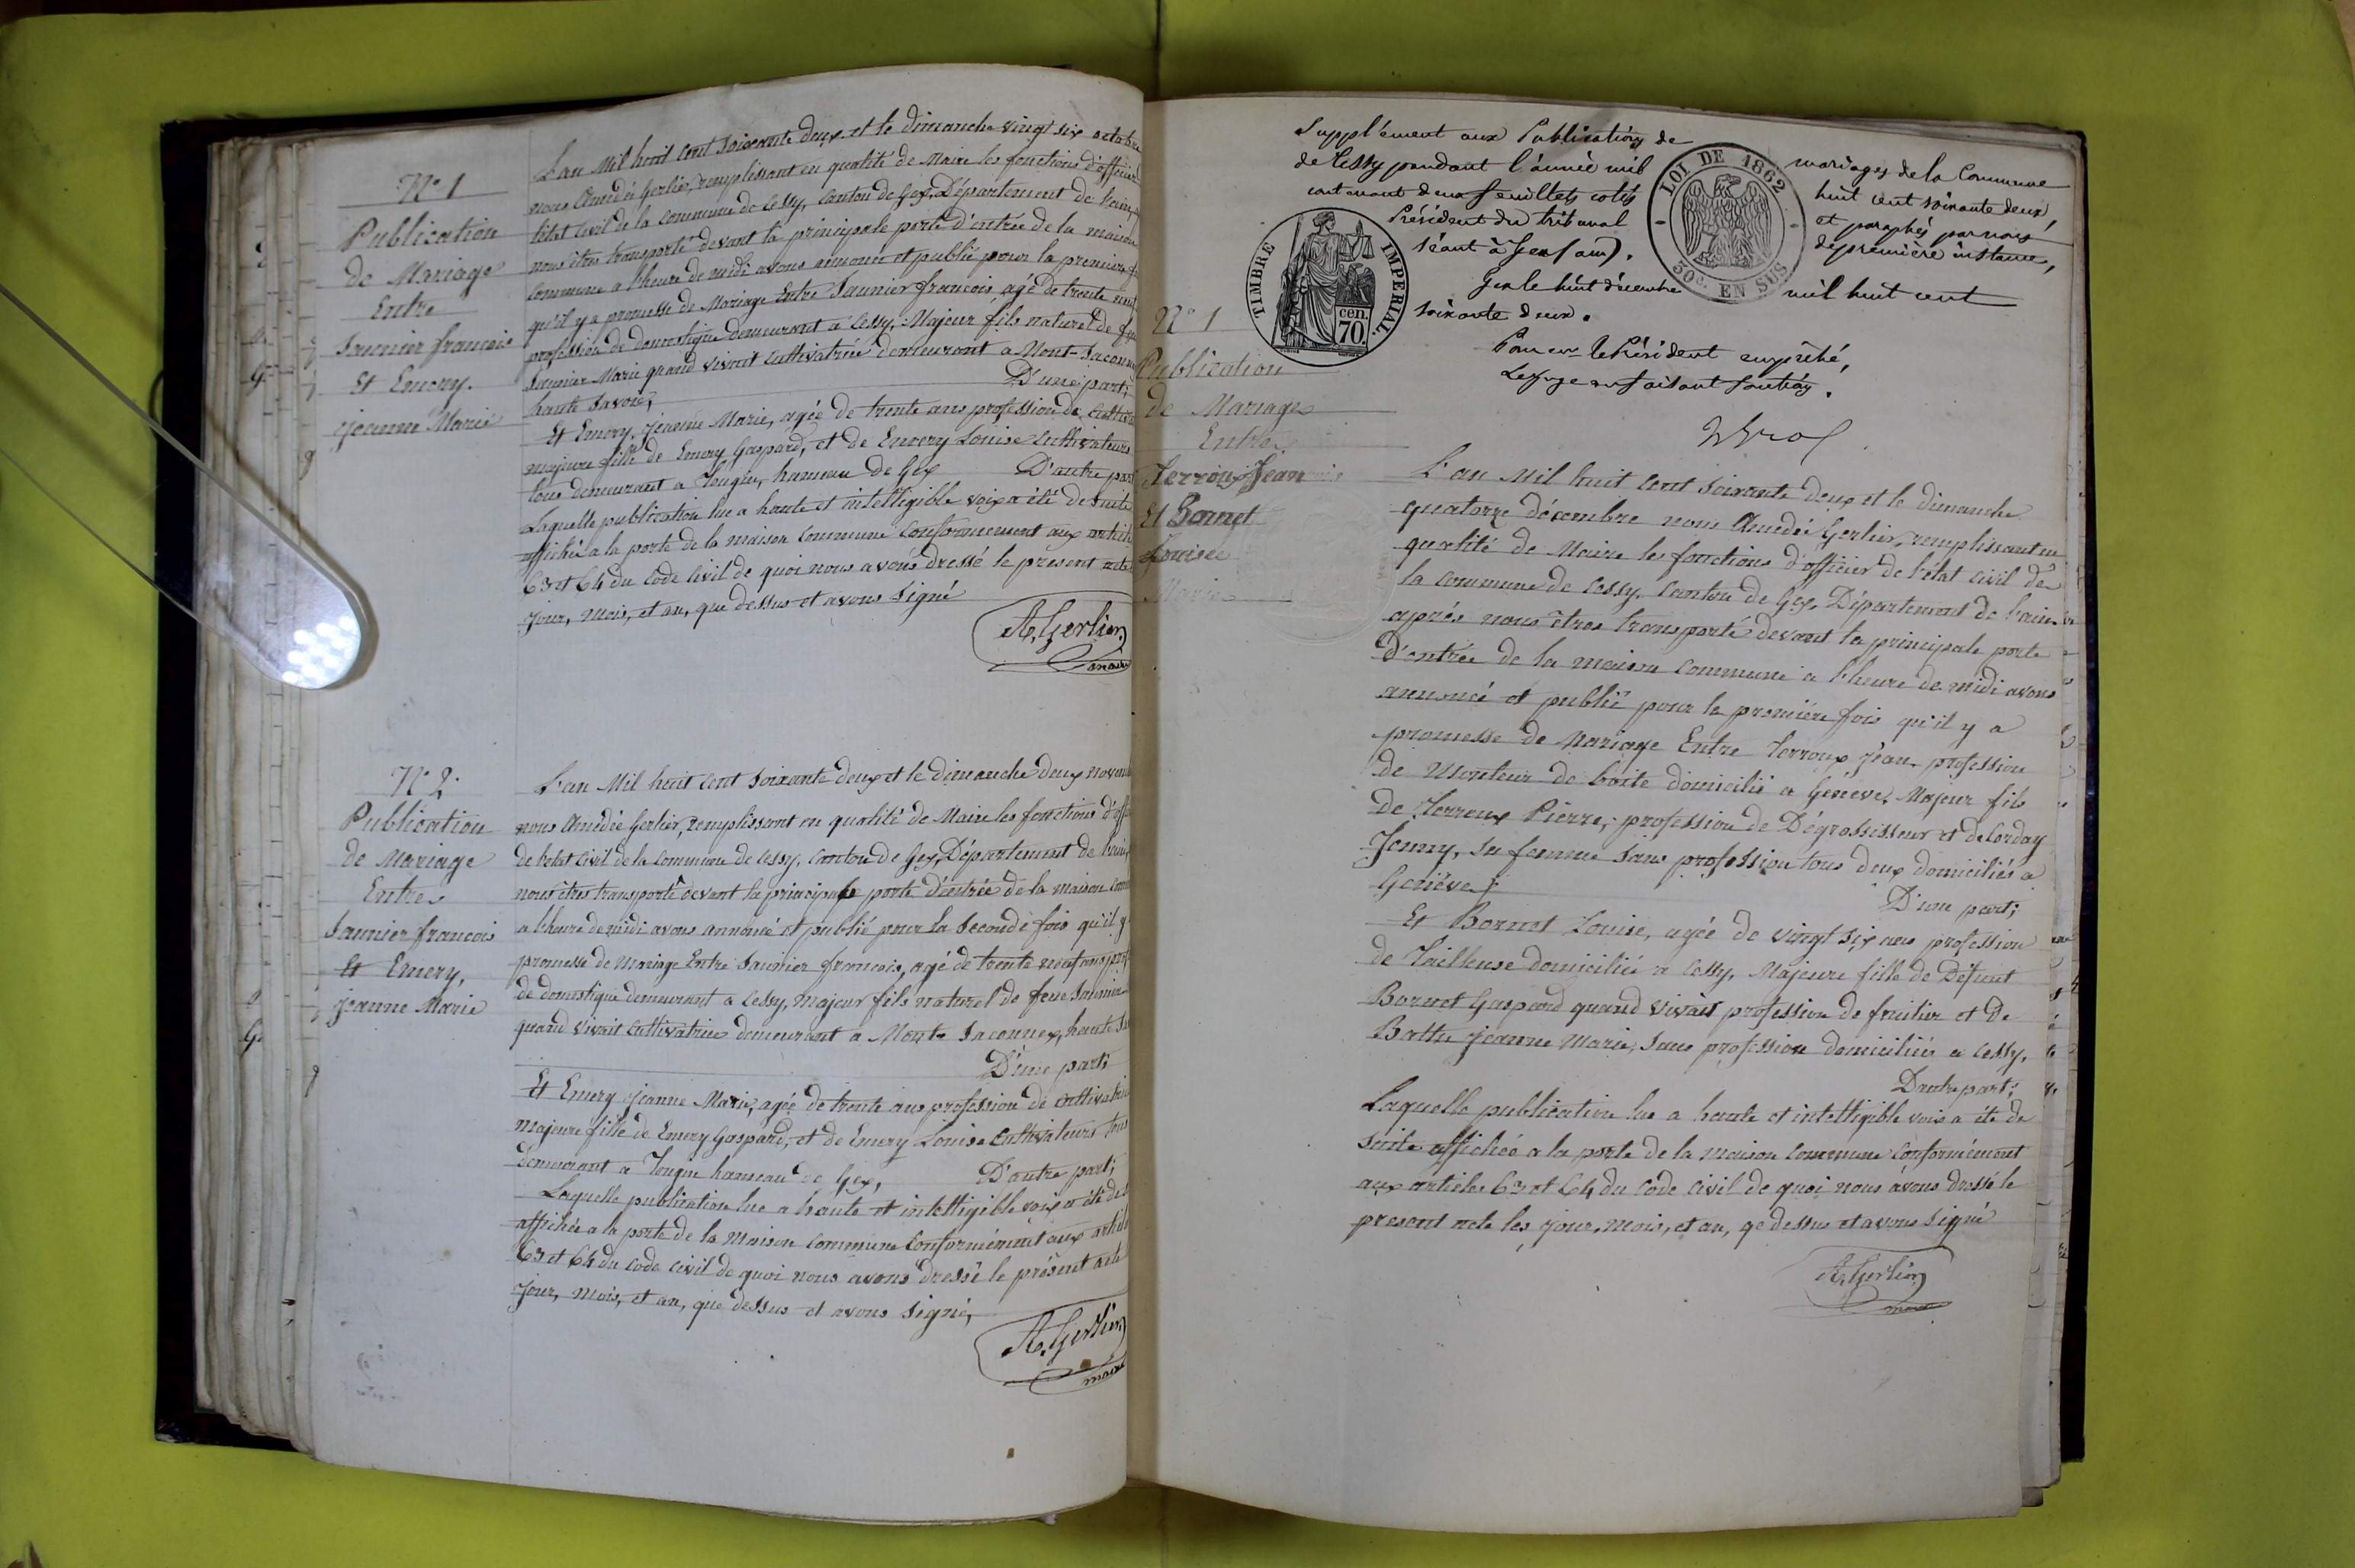 N° 1
Publication
de Mariage
Entre
Saunier francois
Et Emery.
jeanne Marie
L'an Mil huit cent soixante deux et le dimanche vingt six octobre
nous Amédée Gerlier, remplissant en qualité de Maire les fonctions d'officier
l'état civil de la commune de Cessy, canton de Gex, Département de l'ain,
nous êtres transporté devant la principale porte d'entrée de la maison
commune a l'heure de midi avons annoncé et publié pour la première
qu'il y a promesse de Mariage Entre Saunier francois, agé de trente neuf
profession de domestique demeurant a Cessy, Majeur fils naturel de
Saunier Marie quand vivait cultivatrice demeurant a Mont-Saconn
haute Savoie, D'une part;
Et Emery, jeanne Marie, agée de trente ans profession de cultiva
majeure fille de Emery Gaspard, et de Emery Louise Cultivateurs
tous demeurant a Tougin, hameau de Gex D'autre part
Laquelle publication lue a haute et intelligible voix a été de suite
affichée a la porte de la maison commune conformement aux article
63 et 64 du Code Civil de quoi nous avons dressé le présent acte
jour, mois, et an, que dessus et avons signé
A. Gerlier
maire
N° 2.
Publication
de Mariage
Entre
Saunier francois
Et Emery,
jeanne Marie
L'an Mil huit cent soixante deux et le dimanche deux novem
nous Amédée Gerlier, remplissant en qualité de Maire les fonctions d'off
de l'état civil de la commune de Cessy, canton de Gex, Département de l'ain,
nous êtres transporté devant la principale porte d'entrée de la maison com
a l'heure de midi avons annoncé et publié pour la seconde fois qu'il y
promesse de mariage Entre Saunier francois, agé de trente neuf ans prof
de domestique demeurant a Cessy, majeur fils naturel de feue Saunier
quand vivait cultivatrice demeurant a Mont-Saconnex, haute Sa
D'une part;
Et Emery jeanne Marie, agée de trente ans profession de cultivatrice
majeure fille de Emery Gaspard, et de Emery Louise Cultivateurs tous
demeurant a Tougin hameau de Gex, D'autre part;
Laquelle publication lue a haute et intelligible voix a été de
affichée a la porte de la Maison Commune Conformément aux article
63 et 64 du Code civil de quoi nous avons dressé le présent acte
jour, mois, et an, que dessus et avons signé,
A. Gerlier
maire
Supplément aux Publications de mariages de la Commune
de Cessy pendant l'année mil huit cent soixante deux,
contenant deux feuillets cotés et paraphés par nous
Président du tribunal de première instance,
séant à Gex (ain).
Gex le huit décembre mil huit cent
soixante deux.
Pour Mr le Président empêché,
Le juge en faisant fonctions.
LOI DE 1862
50c. EN SUS
TIMBRE IMPERIAL
cen.
70.
N° 1
Publication
de Mariage
Entre
Terroux Jean
Et Bornet
Louise
L'an Mil huit cent soixante deux et le dimanche
quatorze décembre nous Amédée Gerlier, remplissant en
qualité de Maire les fonctions d'officier de l'état civil de
la commune de Cessy, canton de Gex, Département de l'ain
après nous êtres transporté devant la principale porte
d'entrée de la maison commune a l'heure de midi avons
annoncé et publié pour la première fois qu'il y a
promesse de Mariage Entre Terroux Jean, profession
de Monteur de boite domicilié a Génève, Majeur fils
de Terroux Pierre, profession de Dégrossisseur et de Corday
Jenny, sa femme sans profession tous deux domiciliés a
Genève; D'une part;
Et Bornet Louise, agée de vingt six ans profession
de Tailleuse domiciliée a Cessy, Majeure fille de Défunt
Bornet Gaspard quand vivait profession de fruitier et de
Jeanne Marie, sans profession domiciliée a Cessy,
D'autre part;
Laquelle publication lue a haute et intelligible voix a été de
suite affichée a la porte de la Maison commune Conformément
aux articles 63 et 64 du Code civil de quoi nous avons dressé le
present acte les jour, mois, et an, qe dessus et avons signé
A. Gerlier
maire